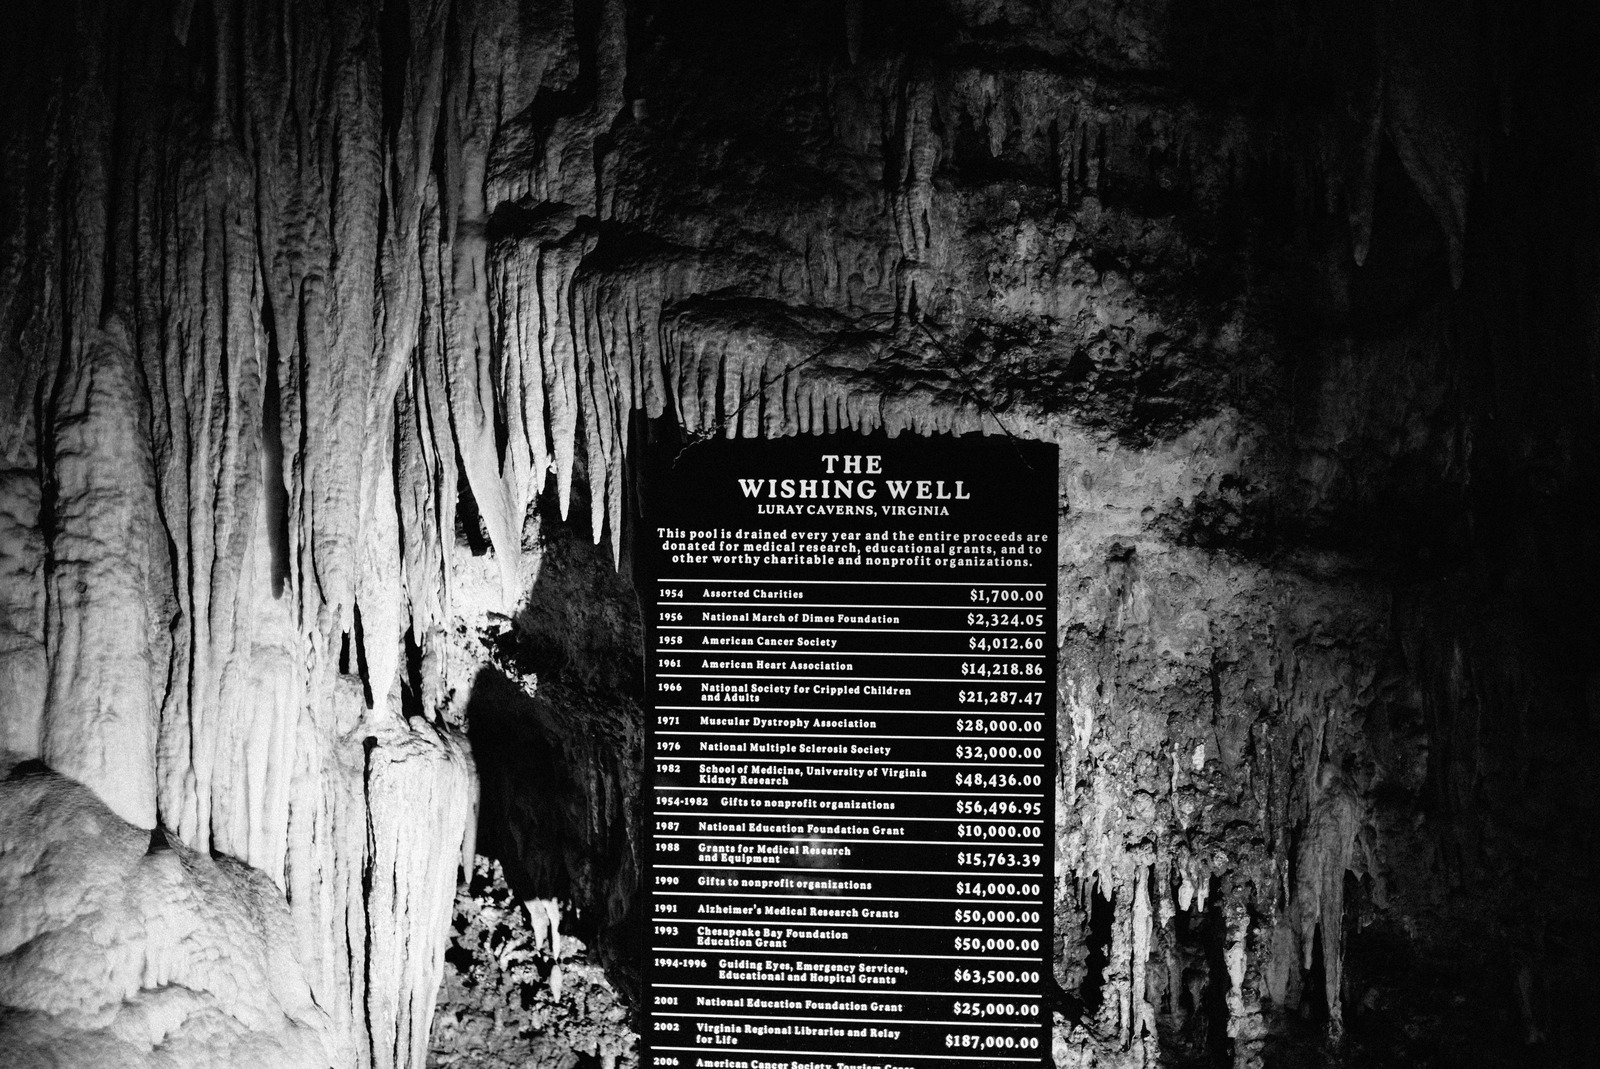 THE
WISHING WELL
LURAY CAVERNS, VIRGINIA
This pool is drained every year and the entire proceeds are
donated for medical research, educational grants, and to
other worthy charitable and nonprofit organizations.
1954 Assorted Charities $1,700.00
1956 National March of Dimes Foundation $2,324.05
1958 American Cancer Society $4,012.60
1961 American Heart Association $14,218.86
1966 National Society for Crippled Children
and Adults $21,287.47
1971 Muscular Dystrophy Association $28,000.00
1976 National Multiple Sclerosis Society $32,000.00
1982 School of Medicine, University of Virginia
Kidney Research $48,436.00
1954-1982 Gifts to nonprofit organizations $56,496.95
1987 National Education Foundation Grant $10,000.00
1988 Grants for Medical Research
and Equipment $15,763.39
1990 Gifts to nonprofit organizations $14,000.00
1991 Alzheimer's Medical Research Grants $50,000.00
1993 Chesapeake Bay Foundation
Education Grant $50,000.00
1994-1996 Guiding Eyes, Emergency Services,
Educational and Hospital Grants $63,500.00
2001 National Education Foundation Grant $25,000.00
2002 Virginia Regional Libraries and Relay
for Life $187,000.00
2006 American Cancer Society, Tourism